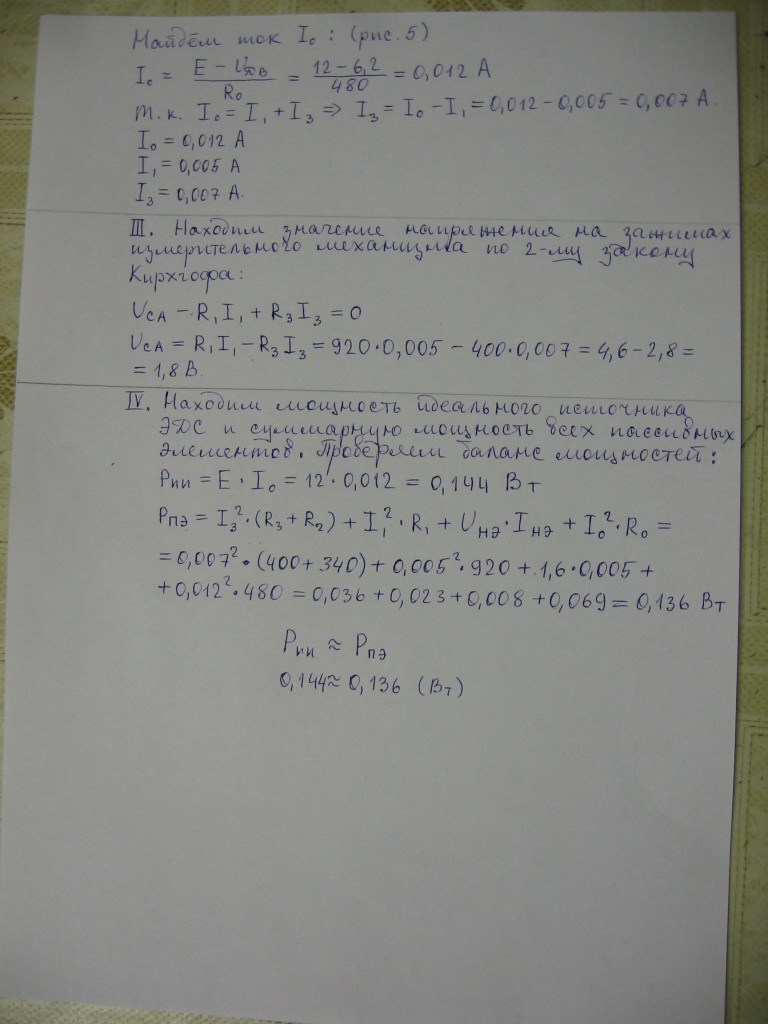 Найдём ток I₀ : (рис. 5)
I₀ = (E − U_DB) / R₀ = (12 − 6,2) / 480 = 0,012 А
т. к. I₀ = I₁ + I₃ ⇒ I₃ = I₀ − I₁ = 0,012 − 0,005 = 0,007 А.
I₀ = 0,012 А
I₁ = 0,005 А
I₃ = 0,007 А.
III. Находим значение напряжения на зажимах
измерительного механизма по 2-му закону
Кирхгофа:
U_CA − R₁I₁ + R₃I₃ = 0
U_CA = R₁I₁ − R₃I₃ = 920·0,005 − 400·0,007 = 4,6 − 2,8 =
= 1,8 В.
IV. Находим мощность идеального источника
ЭДС и суммарную мощность всех пассивных
элементов. Проверяем баланс мощностей:
P_ИИ = E · I₀ = 12 · 0,012 = 0,144 Вт
P_ПЭ = I₃²·(R₃ + R₂) + I₁²·R₁ + U_НЭ·I_НЭ + I₀²·R₀ =
= 0,007²·(400 + 340) + 0,005²·920 + 1,6·0,005 +
+ 0,012²·480 = 0,036 + 0,023 + 0,008 + 0,069 = 0,136 Вт
P_ИИ ≈ P_ПЭ
0,144 ≈ 0,136 (Вт)